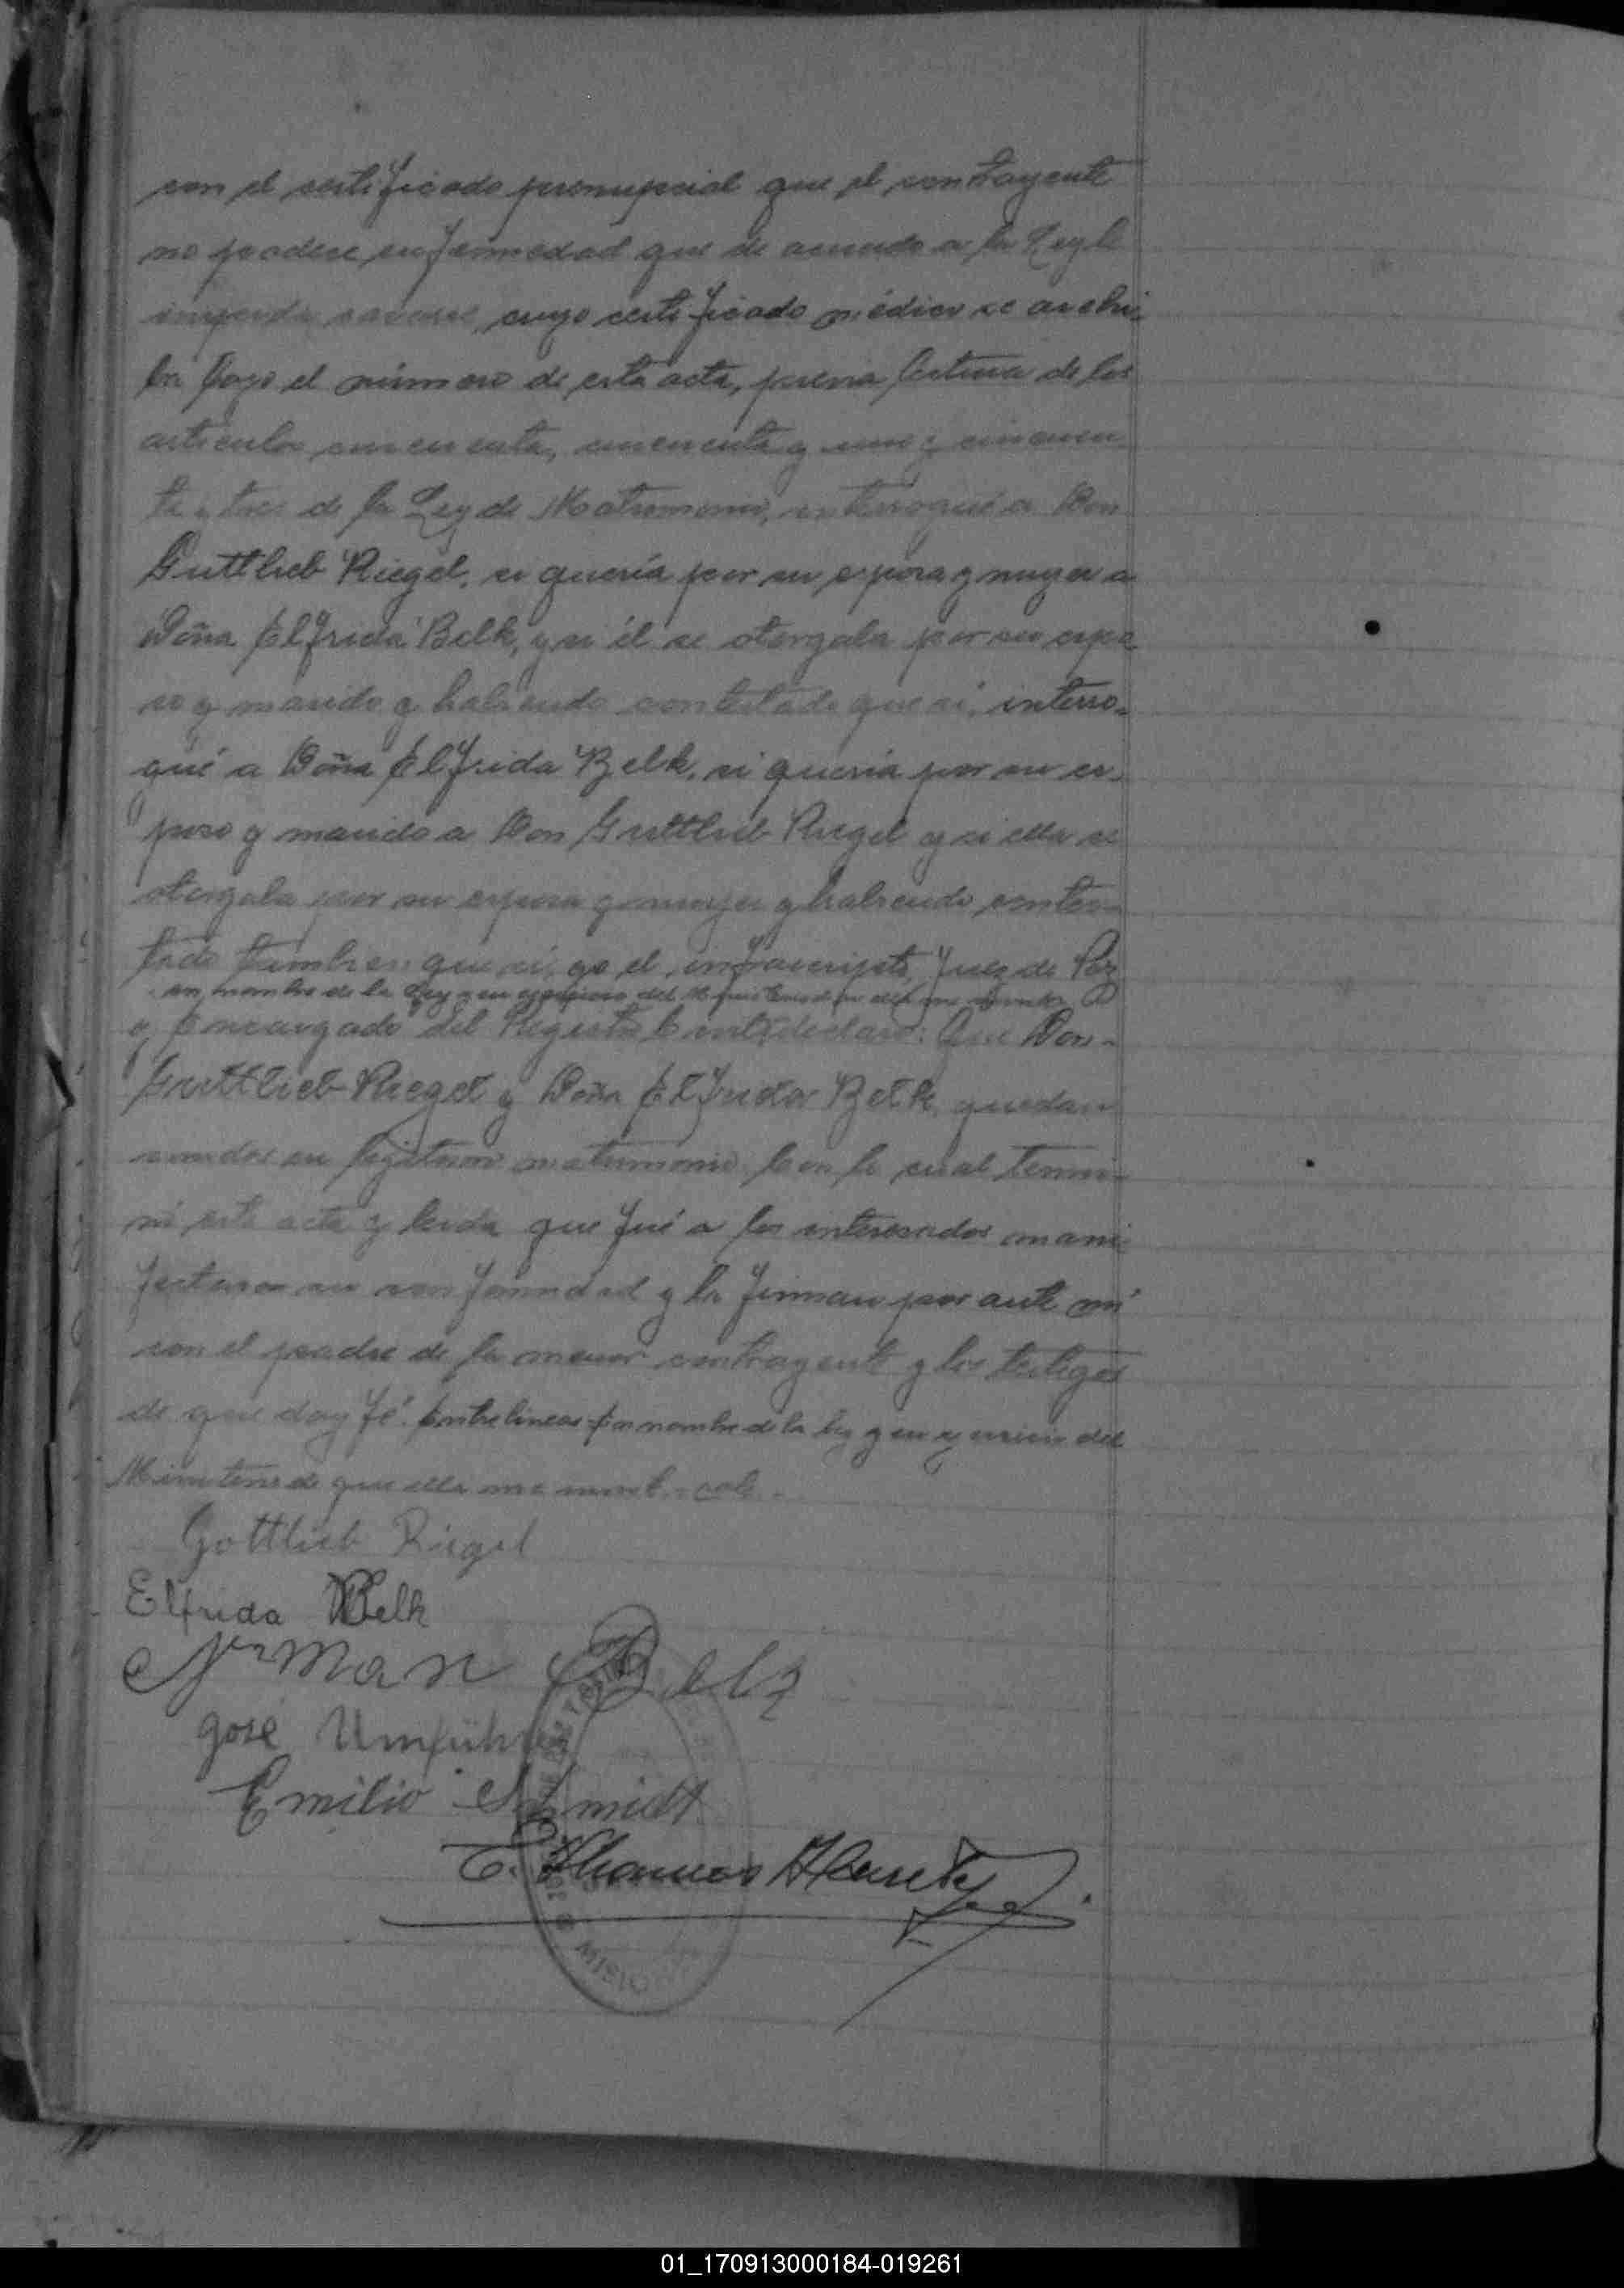 con el certificado prenupcial que el contrayente
no padece enfermedad que de acuerdo a la Ley le
impida casarse, cuyo certificado médico se archi-
ba bajo el número de esta acta, previa lectura de los
artículos cincuenta, cincuenta y uno y cincuen
ta y tres de la Ley de Matrimonio, interrogué a Don
Guttlieb Riegel, si quería por su esposa y mujer a
Doña Elfrida Belk, y si él se otorgaba por su espo
so y marido y habiendo contestado que sí, interro-
gué a Doña Elfrida Belk, si quería por su es-
poso y marido a Don Guttlieb Riegel y si ella se
otorgaba por su esposa y mujer y habiendo contes-
tado tambien que sí, yo el infrascripto, Juez de Paz
en nombre de la Ley y en ejercicio del Ministerio de que ella me
y Encargado del Registro Civil, declaro: Que Don-
Guttlieb Riegel y Doña Elfrida Belk, quedan
unidos en legítimo matrimonio. Con lo cual termi-
nó esta acta y leída que fué a los interesados mani-
festaron su conformidad y la firman por ante mí
con el padre de la menor contrayente y los testigos
de que doy fé. Entrelineas-En nombre de la ley y en ejercicio del
Ministerio de que ella me vale.-
Gottlieb Riegel
Elfrida Belk
Belk
José
Emilio Schmidt
E. Thomas
MISIONES
01_170913000184-019261